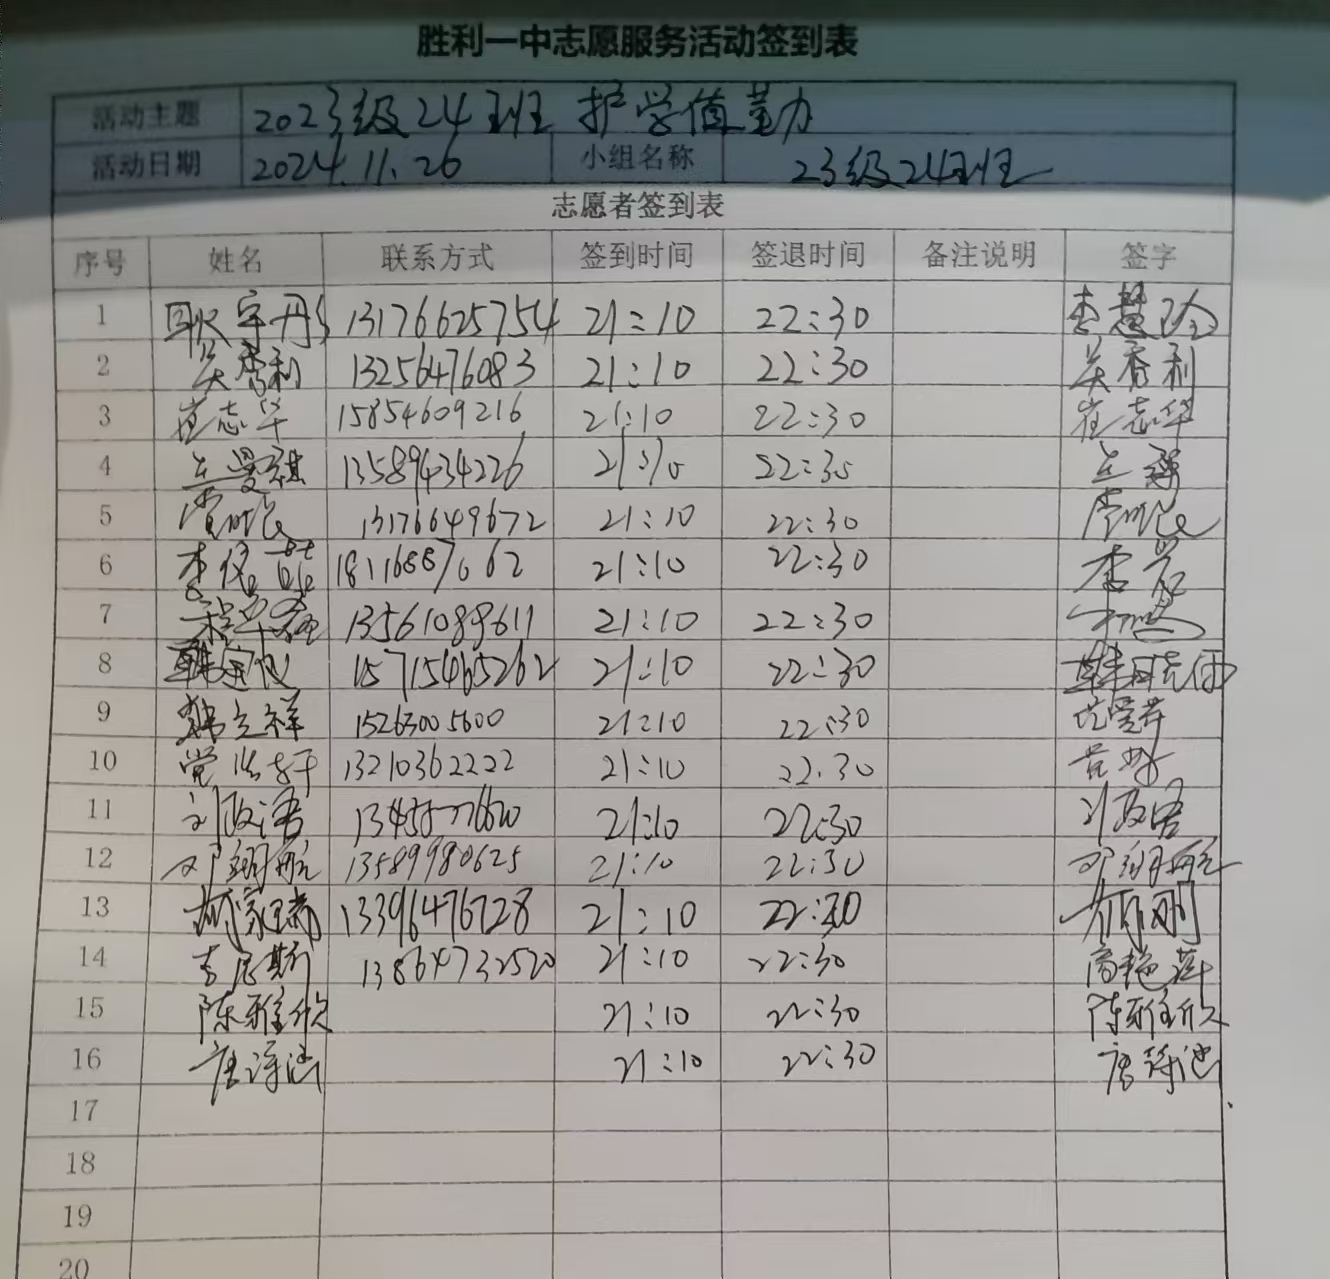 胜利一中志愿服务活动签到表
活动主题 2023级24班 护学值勤
活动日期 2024.11.26 小组名称 23级24班
志愿者签到表
序号 姓名 联系方式 签到时间 签退时间 备注说明 签字
1 13176625754 21:10 22:30 李慧玲
2 吴秀利 13256476083 21:10 22:30 吴秀利
3 崔志华 15854609216 21:10 22:30 崔志华
4 13589434226 21:10 22:30
5 13176649672 21:10 22:30
6 18116887662 21:10 22:30
7 13561089611 21:10 22:30
8 15715465262 21:10 22:30
9 韩立祥 15263005600 21:10 22:30
10 13210362222 21:10 22:30
11 刘政语 21:10 22:30 刘政语
12 邓翔航 13589980625 21:10 22:30 邓翔航
13 13396476728 21:10 22:30
14 13864732520 21:10 22:30 高艳萍
15 陈雅欣 21:10 22:30 陈雅欣
16 21:10 22:30
17
18
19
20